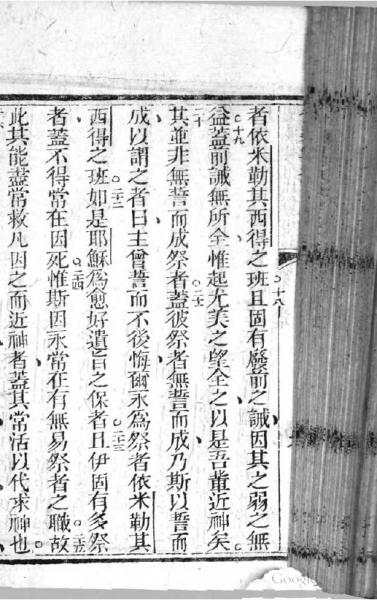 者依米勒其西得之班且固有廢前之誡因其之弱之無
益蓋前誡無所全惟起尤美之望全之以是吾輩近神矣
其並非無誓而成祭者蓋彼祭者無誓而成乃斯以誓而
成以謂之者曰主曾誓而不後悔爾永為祭者依米勒其
西得之班如是耶穌為愈好遺旨之保者且伊固有多祭
者蓋不得常在因死惟斯因永常在有無易祭者之職故
此其能盡常救凡因之而近神者蓋其常活以代求神也
十八
十九
二十
二一
二二
二三
二四
二五
Google